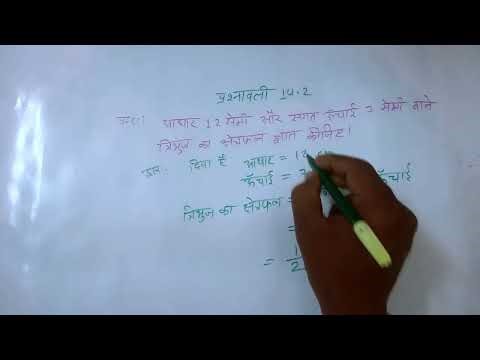 प्रश्नावली 14.2
प्रश्न1 आधार 12 सेमी और संगत ऊँचाई 7 सेमी वाले
त्रिभुज का क्षेत्रफल ज्ञात कीजिए।
दिया है आधार = 12
ऊँचाई = 7
त्रिभुज का क्षेत्रफल = ऊँचाई
=
= 1/2